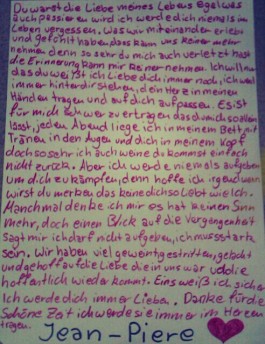 Du warst die Liebe meines Lebens egal was
auch passieren wird ich werde dich niemals im
Leben vergessen. Was wir miteinander erlebt
und gefühlt haben das kann uns keiner mehr
nehmen denn so sehr du mich auch verletzt hast
die Erinnerung kann mir keiner nehmen. Ich will nur
das du weißt ich Liebe dich immer noch, ich werd
immer hinter dir stehen, dein Herz in meinen
Händen tragen und auf dich aufpassen. Es ist
für mich schwer zu ertragen das du mich so allein
lässt, jeden Abend liege ich in meinem Bett mit
Tränen in den Augen und dich in meinem Kopf
doch so sehr ich auch weine du kommst einfach
nicht zurück. Aber ich werde niemals aufgeben
um dich zu kämpfen, denn hoffe ich irgendwann
wirst du merken das keine dich so Liebt wie ich.
Manchmal denke ich mir es hat keinen Sinn
mehr, doch einen Blick auf die Vergangenheit
sagt mir ich darf nicht aufgeben, ich muss stark
sein. Wir haben viel geweint gestritten, gelacht
und gehofft auf die Liebe die in uns war und die
hoffentlich wieder kommt. Eins weiß ich sicher
Ich werde dich immer Lieben. Danke für die
Schöne Zeit ich werde sie immer im Herzen
tragen.
Jean-Piere